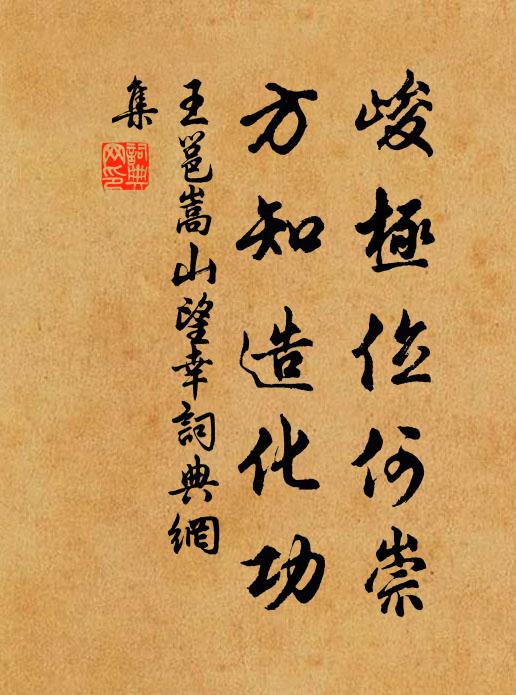 峻極位何崇
方知造化功
王邕嵩山望幸詞典網
集
詞典網印